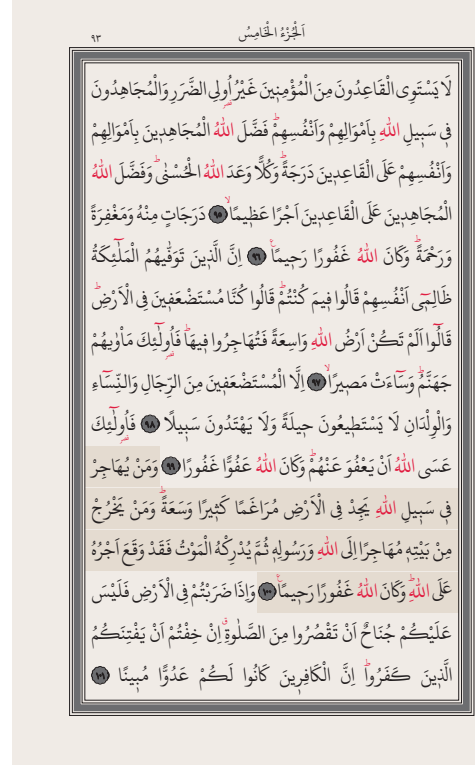 ٩٣ اَلْجُزْءُ الْخَامِسُ
لَا يَسْتَوِى الْقَاعِدُونَ مِنَ الْمُؤْمِنِينَ غَيْرُ اُولِى الضَّرَرِ وَالْمُجَاهِدُونَ
فِى سَبِيلِ اللّٰهِ بِاَمْوَالِهِمْ وَاَنْفُسِهِمْۜ فَضَّلَ اللّٰهُ الْمُجَاهِدِينَ بِاَمْوَالِهِمْ
وَاَنْفُسِهِمْ عَلَى الْقَاعِدِينَ دَرَجَةًۜ وَكُلًّا وَعَدَ اللّٰهُ الْحُسْنٰىۜ وَفَضَّلَ اللّٰهُ
الْمُجَاهِدِينَ عَلَى الْقَاعِدِينَ اَجْرًا عَظِيمًاۙ ﴿٩٥﴾ دَرَجَاتٍ مِنْهُ وَمَغْفِرَةً
وَرَحْمَةًۜ وَكَانَ اللّٰهُ غَفُورًا رَحِيمًا۟ ﴿٩٦﴾ اِنَّ الَّذِينَ تَوَفّٰيهُمُ الْمَلٰٓئِكَةُ
ظَالِمِٓى اَنْفُسِهِمْ قَالُوا فِيمَ كُنْتُمْۜ قَالُوا كُنَّا مُسْتَضْعَفِينَ فِى الْاَرْضِۜ
قَالُٓوا اَلَمْ تَكُنْ اَرْضُ اللّٰهِ وَاسِعَةً فَتُهَاجِرُوا فِيهَاۜ فَاُولٰٓئِكَ مَاْوٰيهُمْ
جَهَنَّمُۜ وَسَٓاءَتْ مَصِيرًاۙ ﴿٩٧﴾ اِلَّا الْمُسْتَضْعَفِينَ مِنَ الرِّجَالِ وَالنِّسَٓاءِ
وَالْوِلْدَانِ لَا يَسْتَطِيعُونَ حِيلَةً وَلَا يَهْتَدُونَ سَبِيلًا ﴿٩٨﴾ فَاُولٰٓئِكَ
عَسَى اللّٰهُ اَنْ يَعْفُوَ عَنْهُمْۜ وَكَانَ اللّٰهُ عَفُوًّا غَفُورًا ﴿٩٩﴾ وَمَنْ يُهَاجِرْ
فِى سَبِيلِ اللّٰهِ يَجِدْ فِى الْاَرْضِ مُرَاغَمًا كَثِيرًا وَسَعَةًۜ وَمَنْ يَخْرُجْ
مِنْ بَيْتِهِ مُهَاجِرًا اِلَى اللّٰهِ وَرَسُولِهِ ثُمَّ يُدْرِكْهُ الْمَوْتُ فَقَدْ وَقَعَ اَجْرُهُ
عَلَى اللّٰهِۜ وَكَانَ اللّٰهُ غَفُورًا رَحِيمًا۟ ﴿١٠٠﴾ وَاِذَا ضَرَبْتُمْ فِى الْاَرْضِ فَلَيْسَ
عَلَيْكُمْ جُنَاحٌ اَنْ تَقْصُرُوا مِنَ الصَّلٰوةِۗ اِنْ خِفْتُمْ اَنْ يَفْتِنَكُمُ
الَّذِينَ كَفَرُواۜ اِنَّ الْكَافِرِينَ كَانُوا لَكُمْ عَدُوًّا مُبِينًا ﴿١٠١﴾